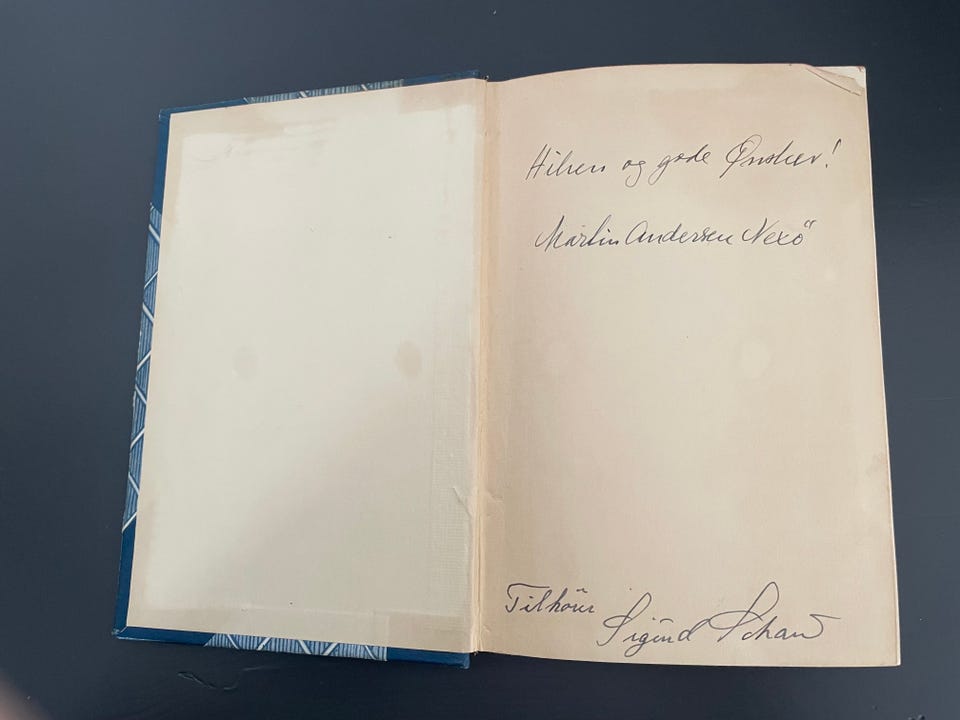 Hilsen og gode Ønsker!
Martin Andersen Nexö
Tilhörir Sigmund